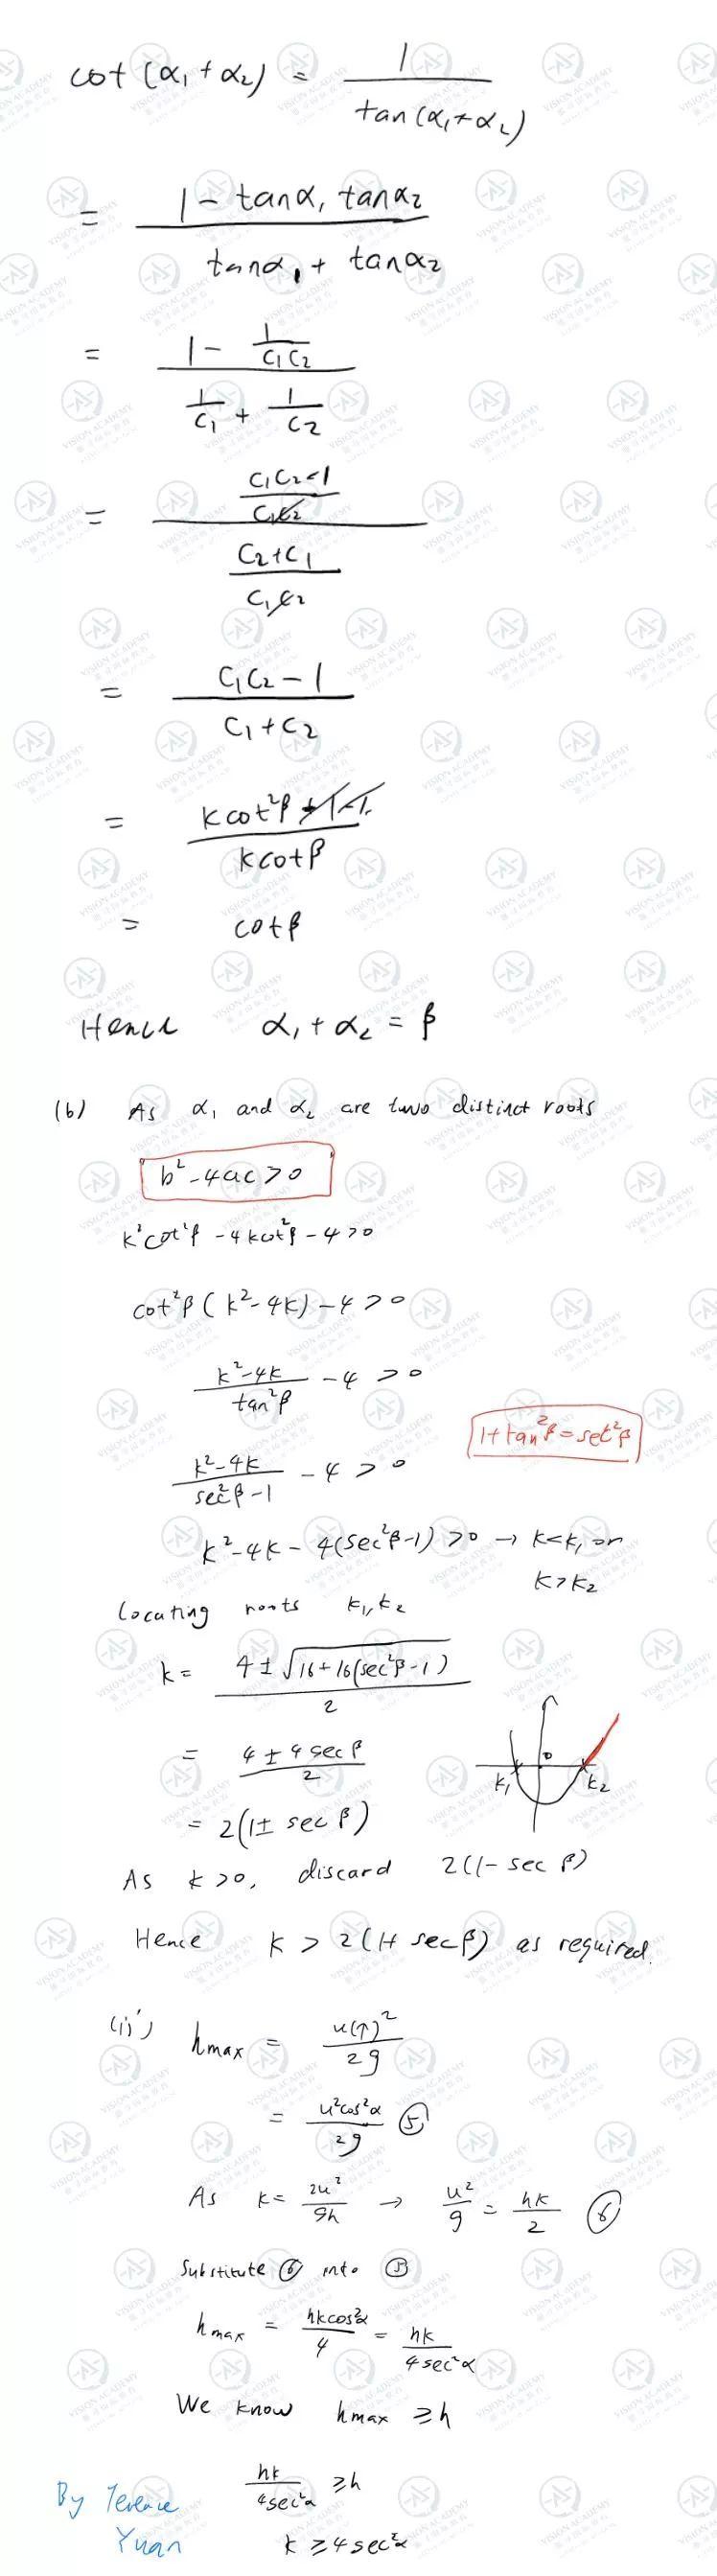 cot (α₁ + α₂) = 1 / tan(α₁+α₂)
= (1 - tanα₁ tanα₂) / (tanα₁ + tanα₂)
= (1 - 1/(C₁C₂)) / (1/C₁ + 1/C₂)
= ((C₁C₂-1)/(C₁C₂)) / ((C₂+C₁)/(C₁C₂))
= (C₁C₂ - 1) / (C₁+C₂)
= (kcot²β + 1 - 1) / (kcotβ)
= cotβ
Hence α₁ + α₂ = β
(b) As α₁ and α₂ are two distinct roots
b² - 4ac > 0
k²cot²β - 4kcot²β - 4 > 0
cot²β (k² - 4k) - 4 > 0
(k² - 4k) / tan²β - 4 > 0
1 + tan²β = sec²β
(k² - 4k) / (sec²β - 1) - 4 > 0
k² - 4k - 4(sec²β - 1) > 0 → k < k₁ or
k > k₂
Locating roots k₁, k₂
k = (4 ± √(16 + 16(sec²β - 1))) / 2
= (4 ± 4 sec β) / 2
k₁ 0 k₂
= 2(1 ± sec β)
As k > 0, discard 2(1 - sec β)
Hence k > 2(1 + secβ) as required.
(ii) hmax = u(↑)² / 2g
= u²cos²α / 2g ⑤
As k = 2u² / gh → u² / g = hk / 2 ⑥
Substitute ⑥ into ⑤
hmax = hkcos²α / 4 = hk / 4sec²α
We know hmax ≥ h
hk / 4sec²α ≥ h
k ≥ 4sec²α
By Terence
Yuan
VISION ACADEMY